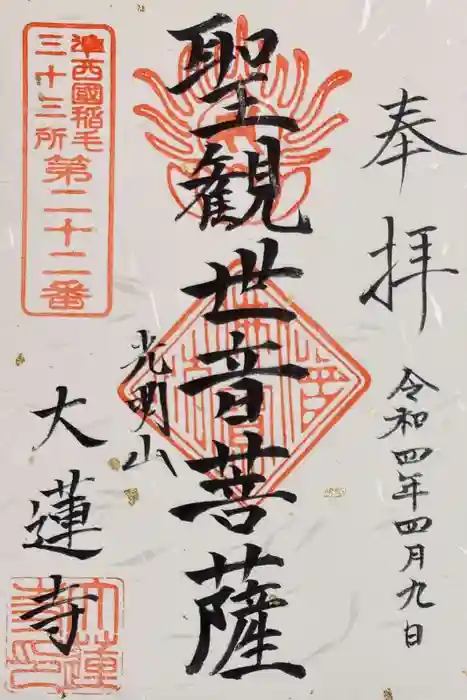 奉拝
令和四年四月九日
聖観世音菩薩
光明山
大蓮寺
準西國稲毛
三十三所
第二十二番
大蓮
寺印